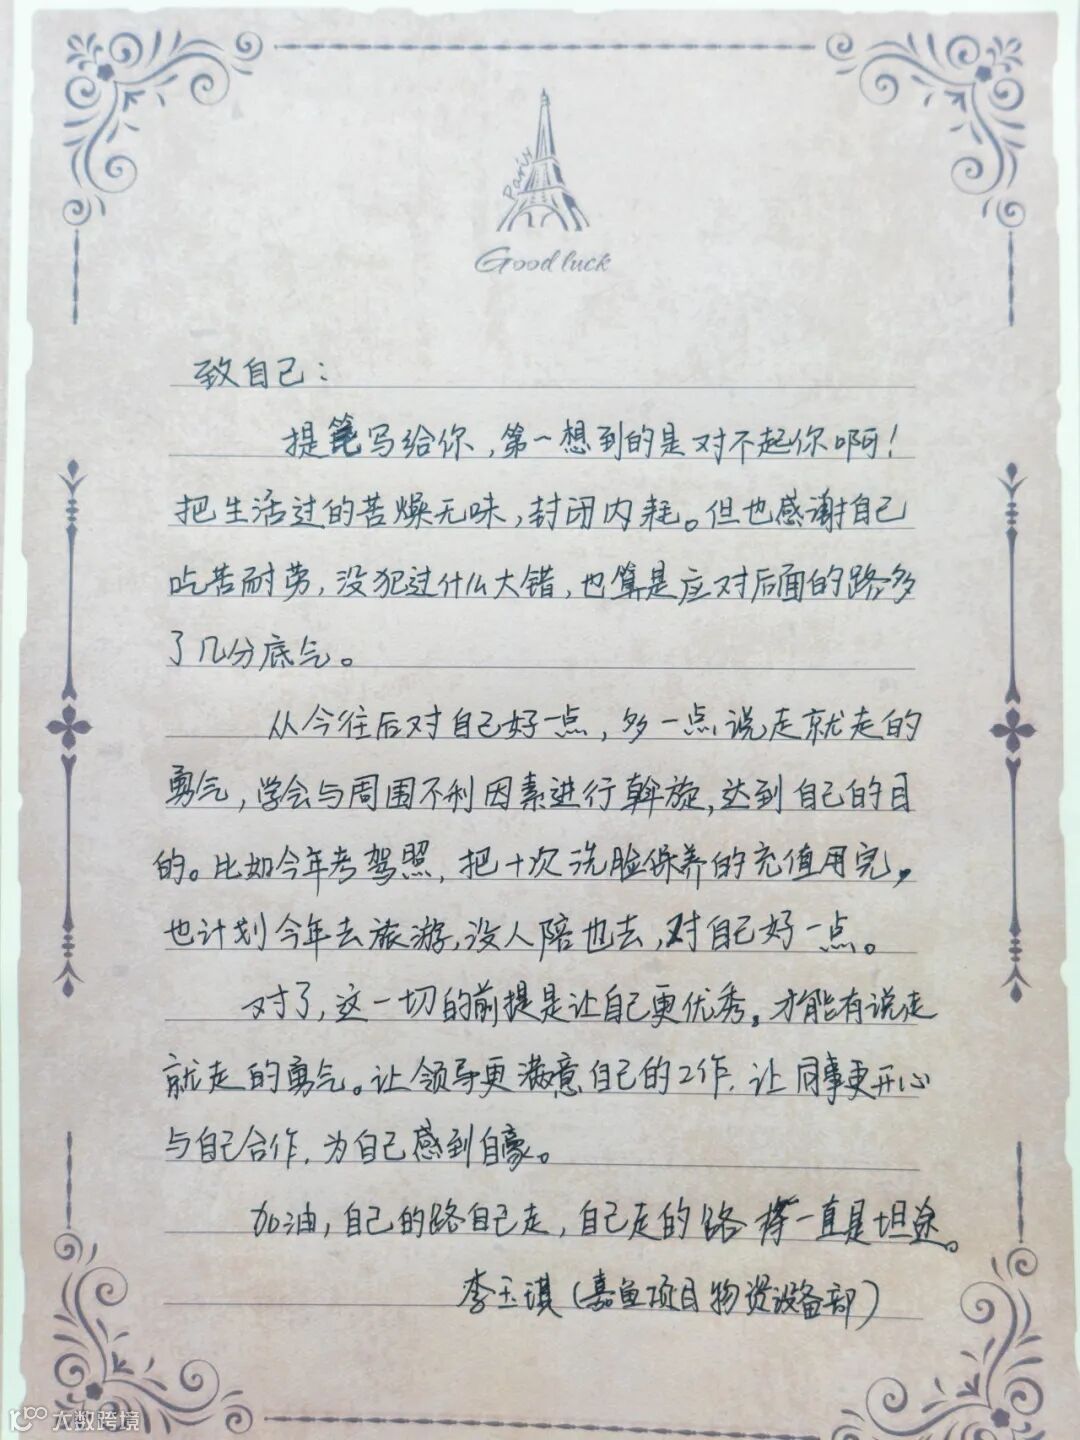 Paris
Good luck
致自己：
提笔写给你，第一想到的是对不起你啊！
把生活过的苦燥无味，封闭内耗。但也感谢自己
吃苦耐劳，没犯过什么大错，也算是应对后面的路多
了几分底气。
从今往后对自己好一点，多一点说走就走的
勇气，学会与周围不利因素进行斡旋，达到自己的目
的。比如今年考驾照，把十次洗脸保养的充值用完，
也计划今年去旅游，没人陪也去，对自己好一点。
对了，这一切的前提是让自己更优秀。才能有说走
就走的勇气。让领导更满意自己的工作，让同事更开心
与自己合作，为自己感到自豪。
加油，自己的路自己走，自己走的路一直是坦途。
李玉琪（嘉鱼项目物资设备部）
大数跨境